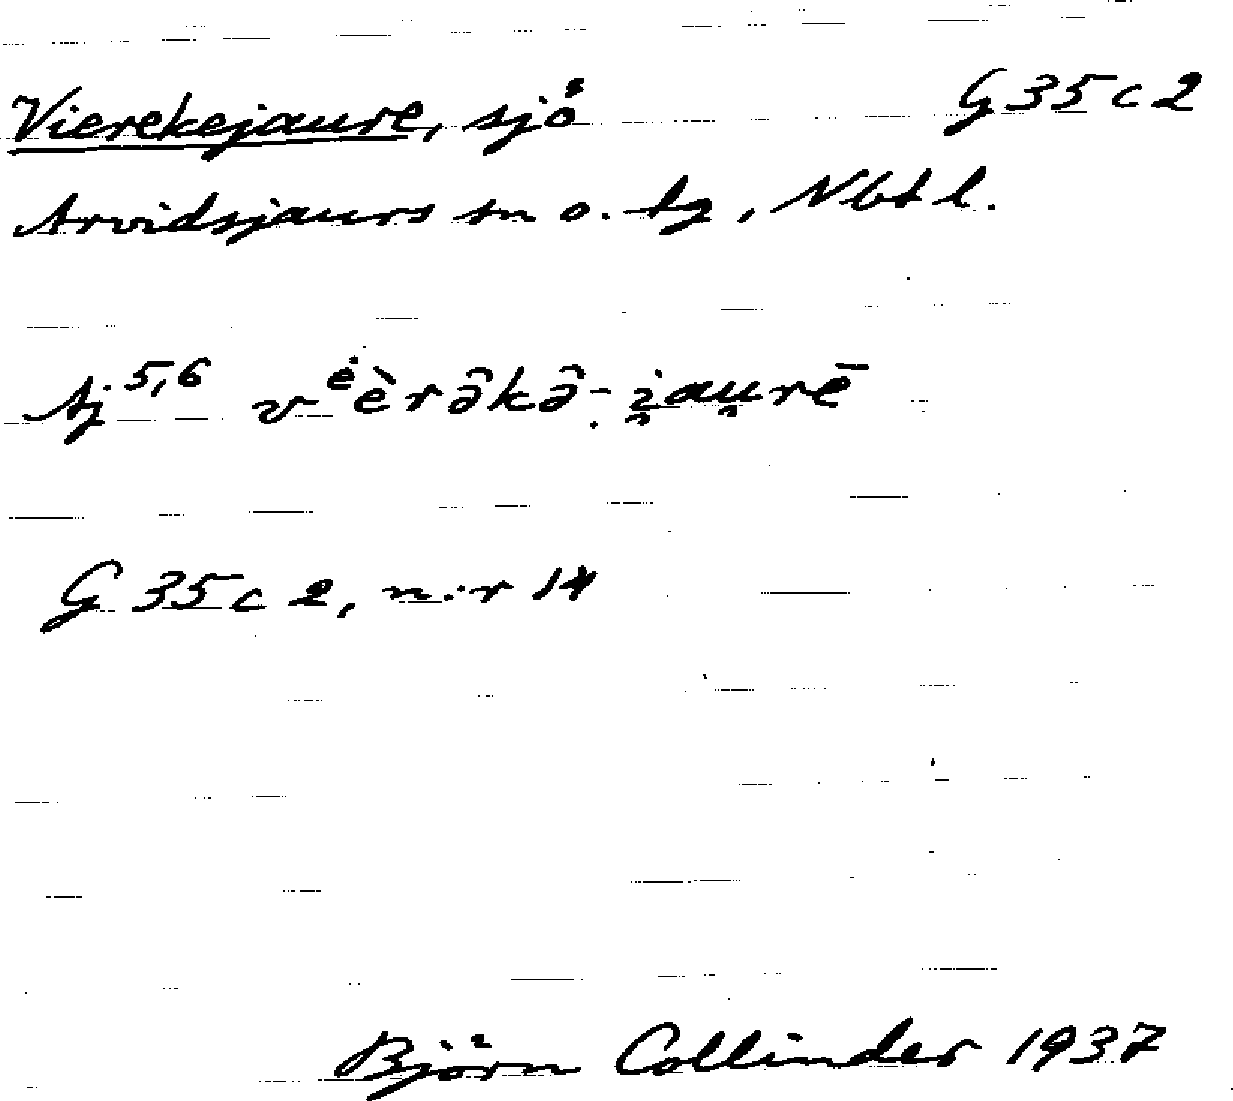 Vierekejaure, sjö G 35 c 2
Arvidsjaurs sn o. tg, Nbt l.
Aj 5,6 vė̀èrə̂kə̂-i̯au̯rē
G 35 c 2, n:r 14
Björn Collinder 1937